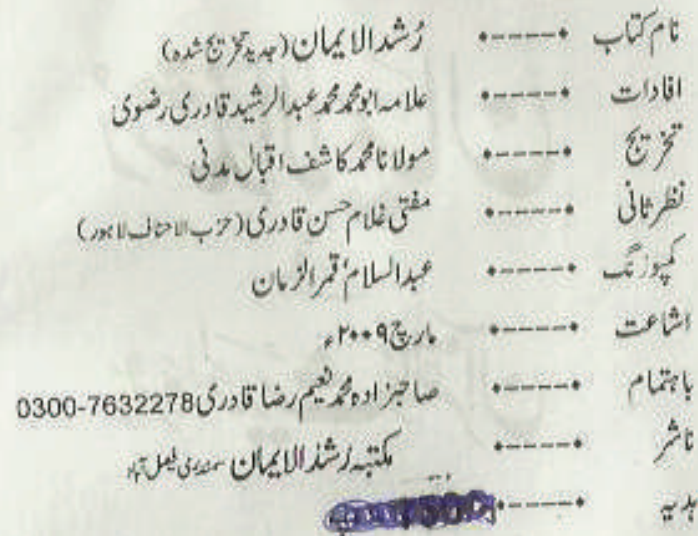 نام کتاب •-----• رُشد الایمان (جدید تخریج شدہ)
افادات •-----• علامہ ابو محمد محمد عبدالرشید قادری رضوی
تخریج •-----• مولانا محمد کاشف اقبال مدنی
نظر ثانی •-----• مفتی غلام حسن قادری (حزب الاحناف لاہور)
کمپوزنگ •-----• عبدالسلام ؍ قمرالزمان
اشاعت •-----• مارچ ۲۰۰۹ء
باہتمام •-----• صاحبزادہ محمد نعیم رضا قادری 0300-7632278
ناشر •-----• مکتبہ رشد الایمان سمندری فیصل آباد
ہدیہ •-----•